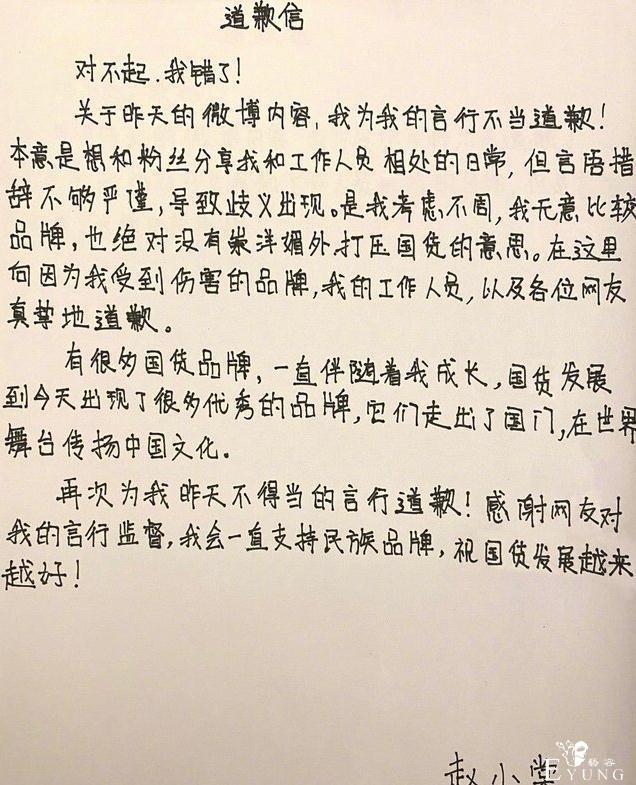 道歉信
对不起.我错了!
关于昨天的微博内容,我为我的言行不当道歉!
本意是想和粉丝分享我和工作人员相处的日常,但言语措
辞不够严谨,导致歧义出现。是我考虑不周,我无意比较
品牌,也绝对没有崇洋媚外,打压国货的意思。在这里
向因为我受到伤害的品牌,我的工作人员,以及各位网友
真挚地道歉。
有很多国货品牌,一直伴随着我成长,国货发展
到今天出现了很多优秀的品牌,它们走出了国门,在世界
舞台传扬中国文化。
再次为我昨天不得当的言行道歉!感谢网友对
我的言行监督,我会一直支持民族品牌,祝国货发展越来
越好!
赵小棠
藝容
EYUNG